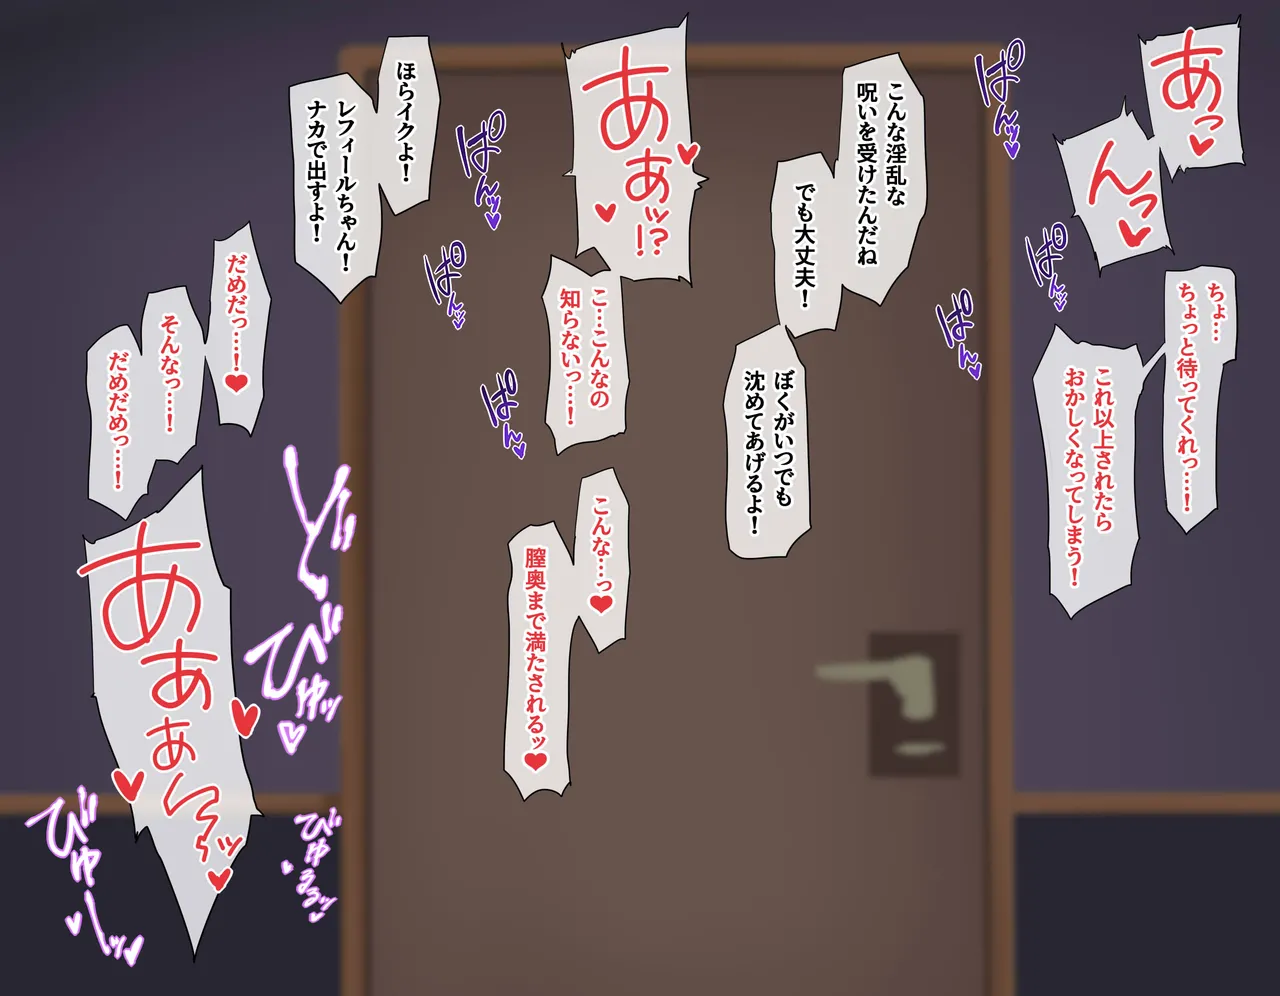 あっ♥
んっ♥
ちょ…
ちょっと待ってくれっ…!
これ以上されたら
おかしくなってしまう!
ぱんッ♥
ぱんッ♥
ぱんッ♥
こんな淫乱な
呪いを受けたんだね
でも大丈夫!
ぼくがいつでも
沈めてあげるよ!
あぁッ!?♥♥
こ…こんなの
知らないっ…!
こんな…っ♥
膣奥まで満たされるッ♥
ぱんッ♥
ぱんッ♥
ぱんッ♥
ほらイクよ!
レフィールちゃん!
ナカで出すよ!
だめだっ…!♥
そんなっ…!
だめだめっ…!
あぁぁん〜ッ♥♥♥
どッ
びゅッ♥
びゅるるッ♥
びゅーッ♥♥